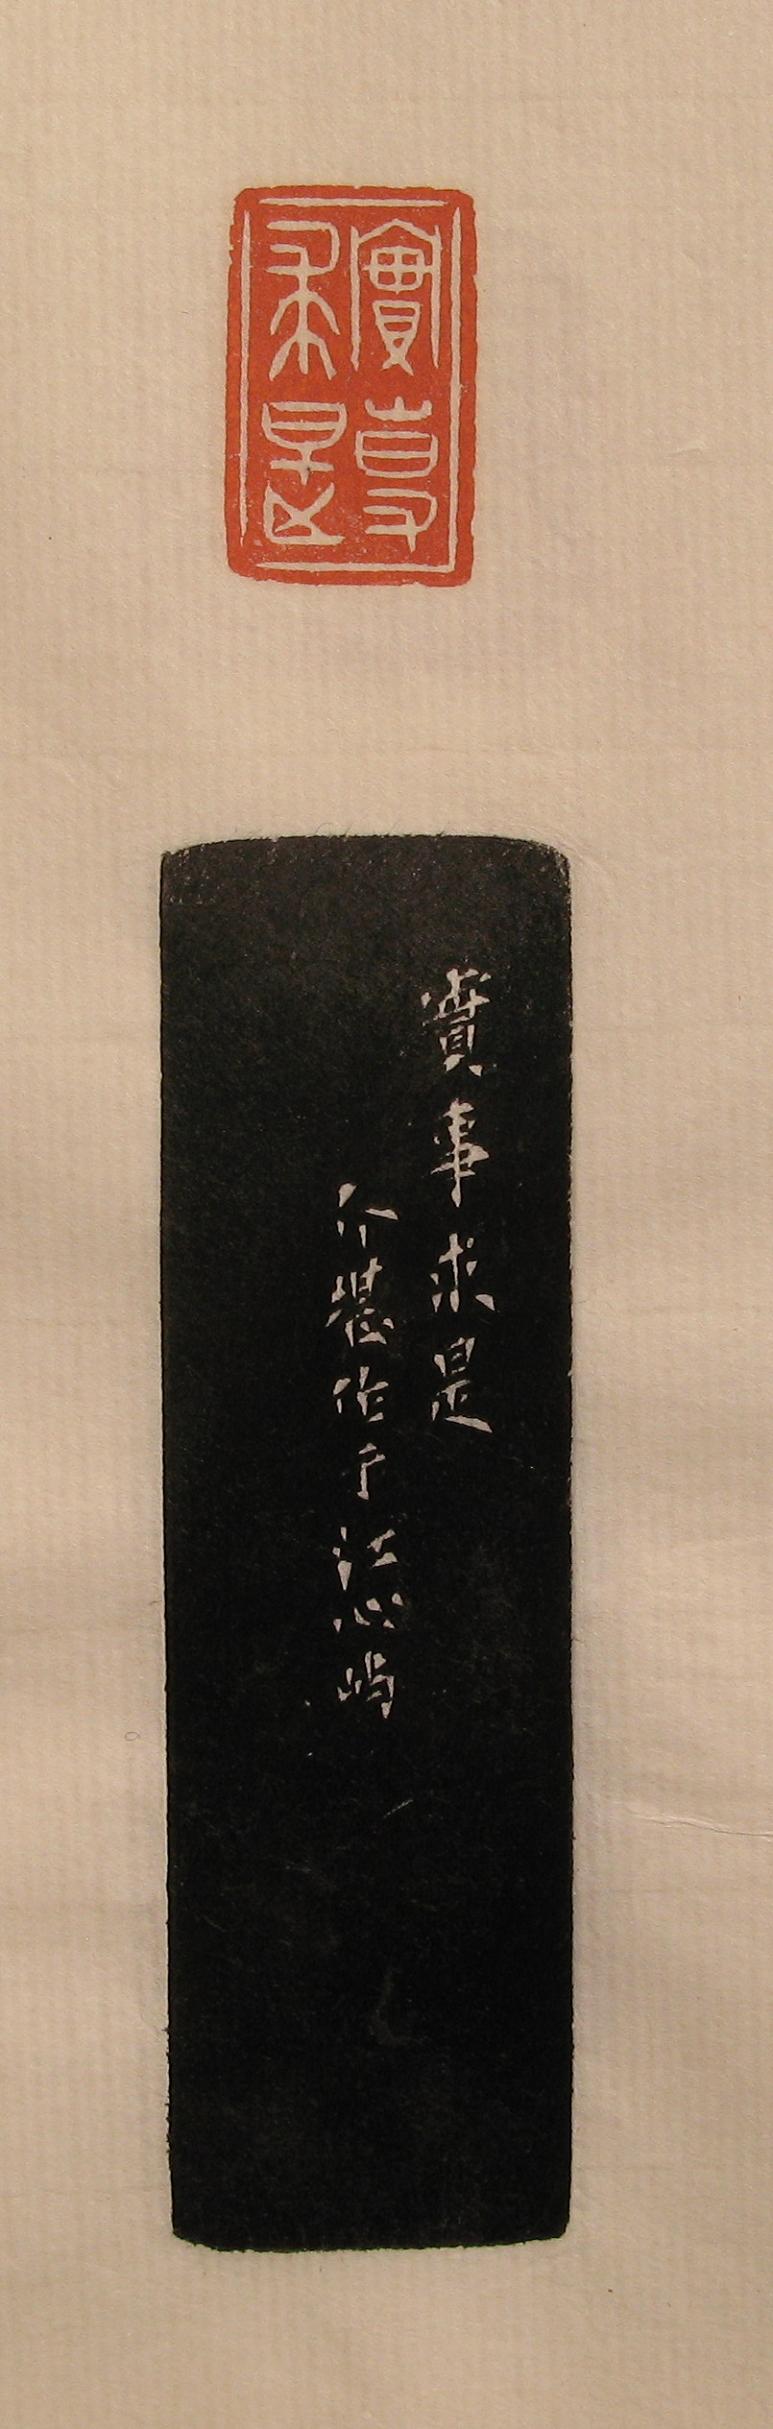 實事
求是
實事求是
介堪作于江心屿